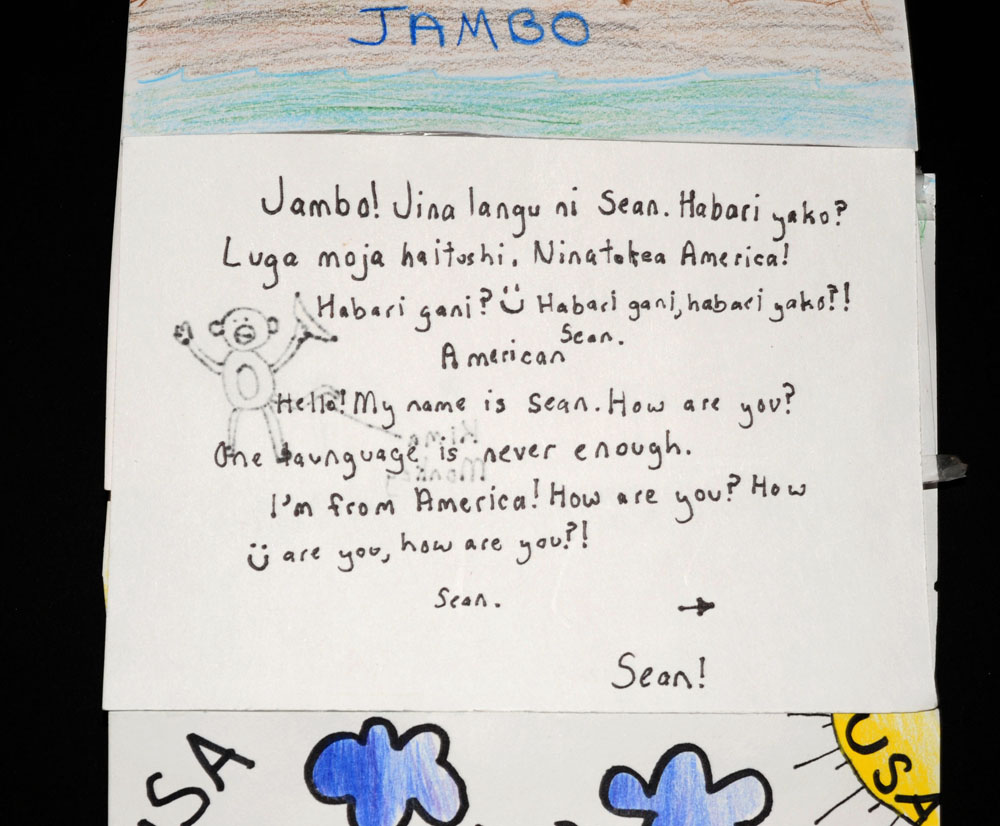 JAMBO
Jambo! Jina langu ni Sean. Habari yako?
Luga moja haitoshi. Ninatokea America!
Habari gani? Habari gani, habari yako?!
Sean.
American
Hello! My name is Sean. How are you?
One launguage is never enough.
I'm from America! How are you? How
are you, how are you?!
Sean.
Sean!
USA
USA